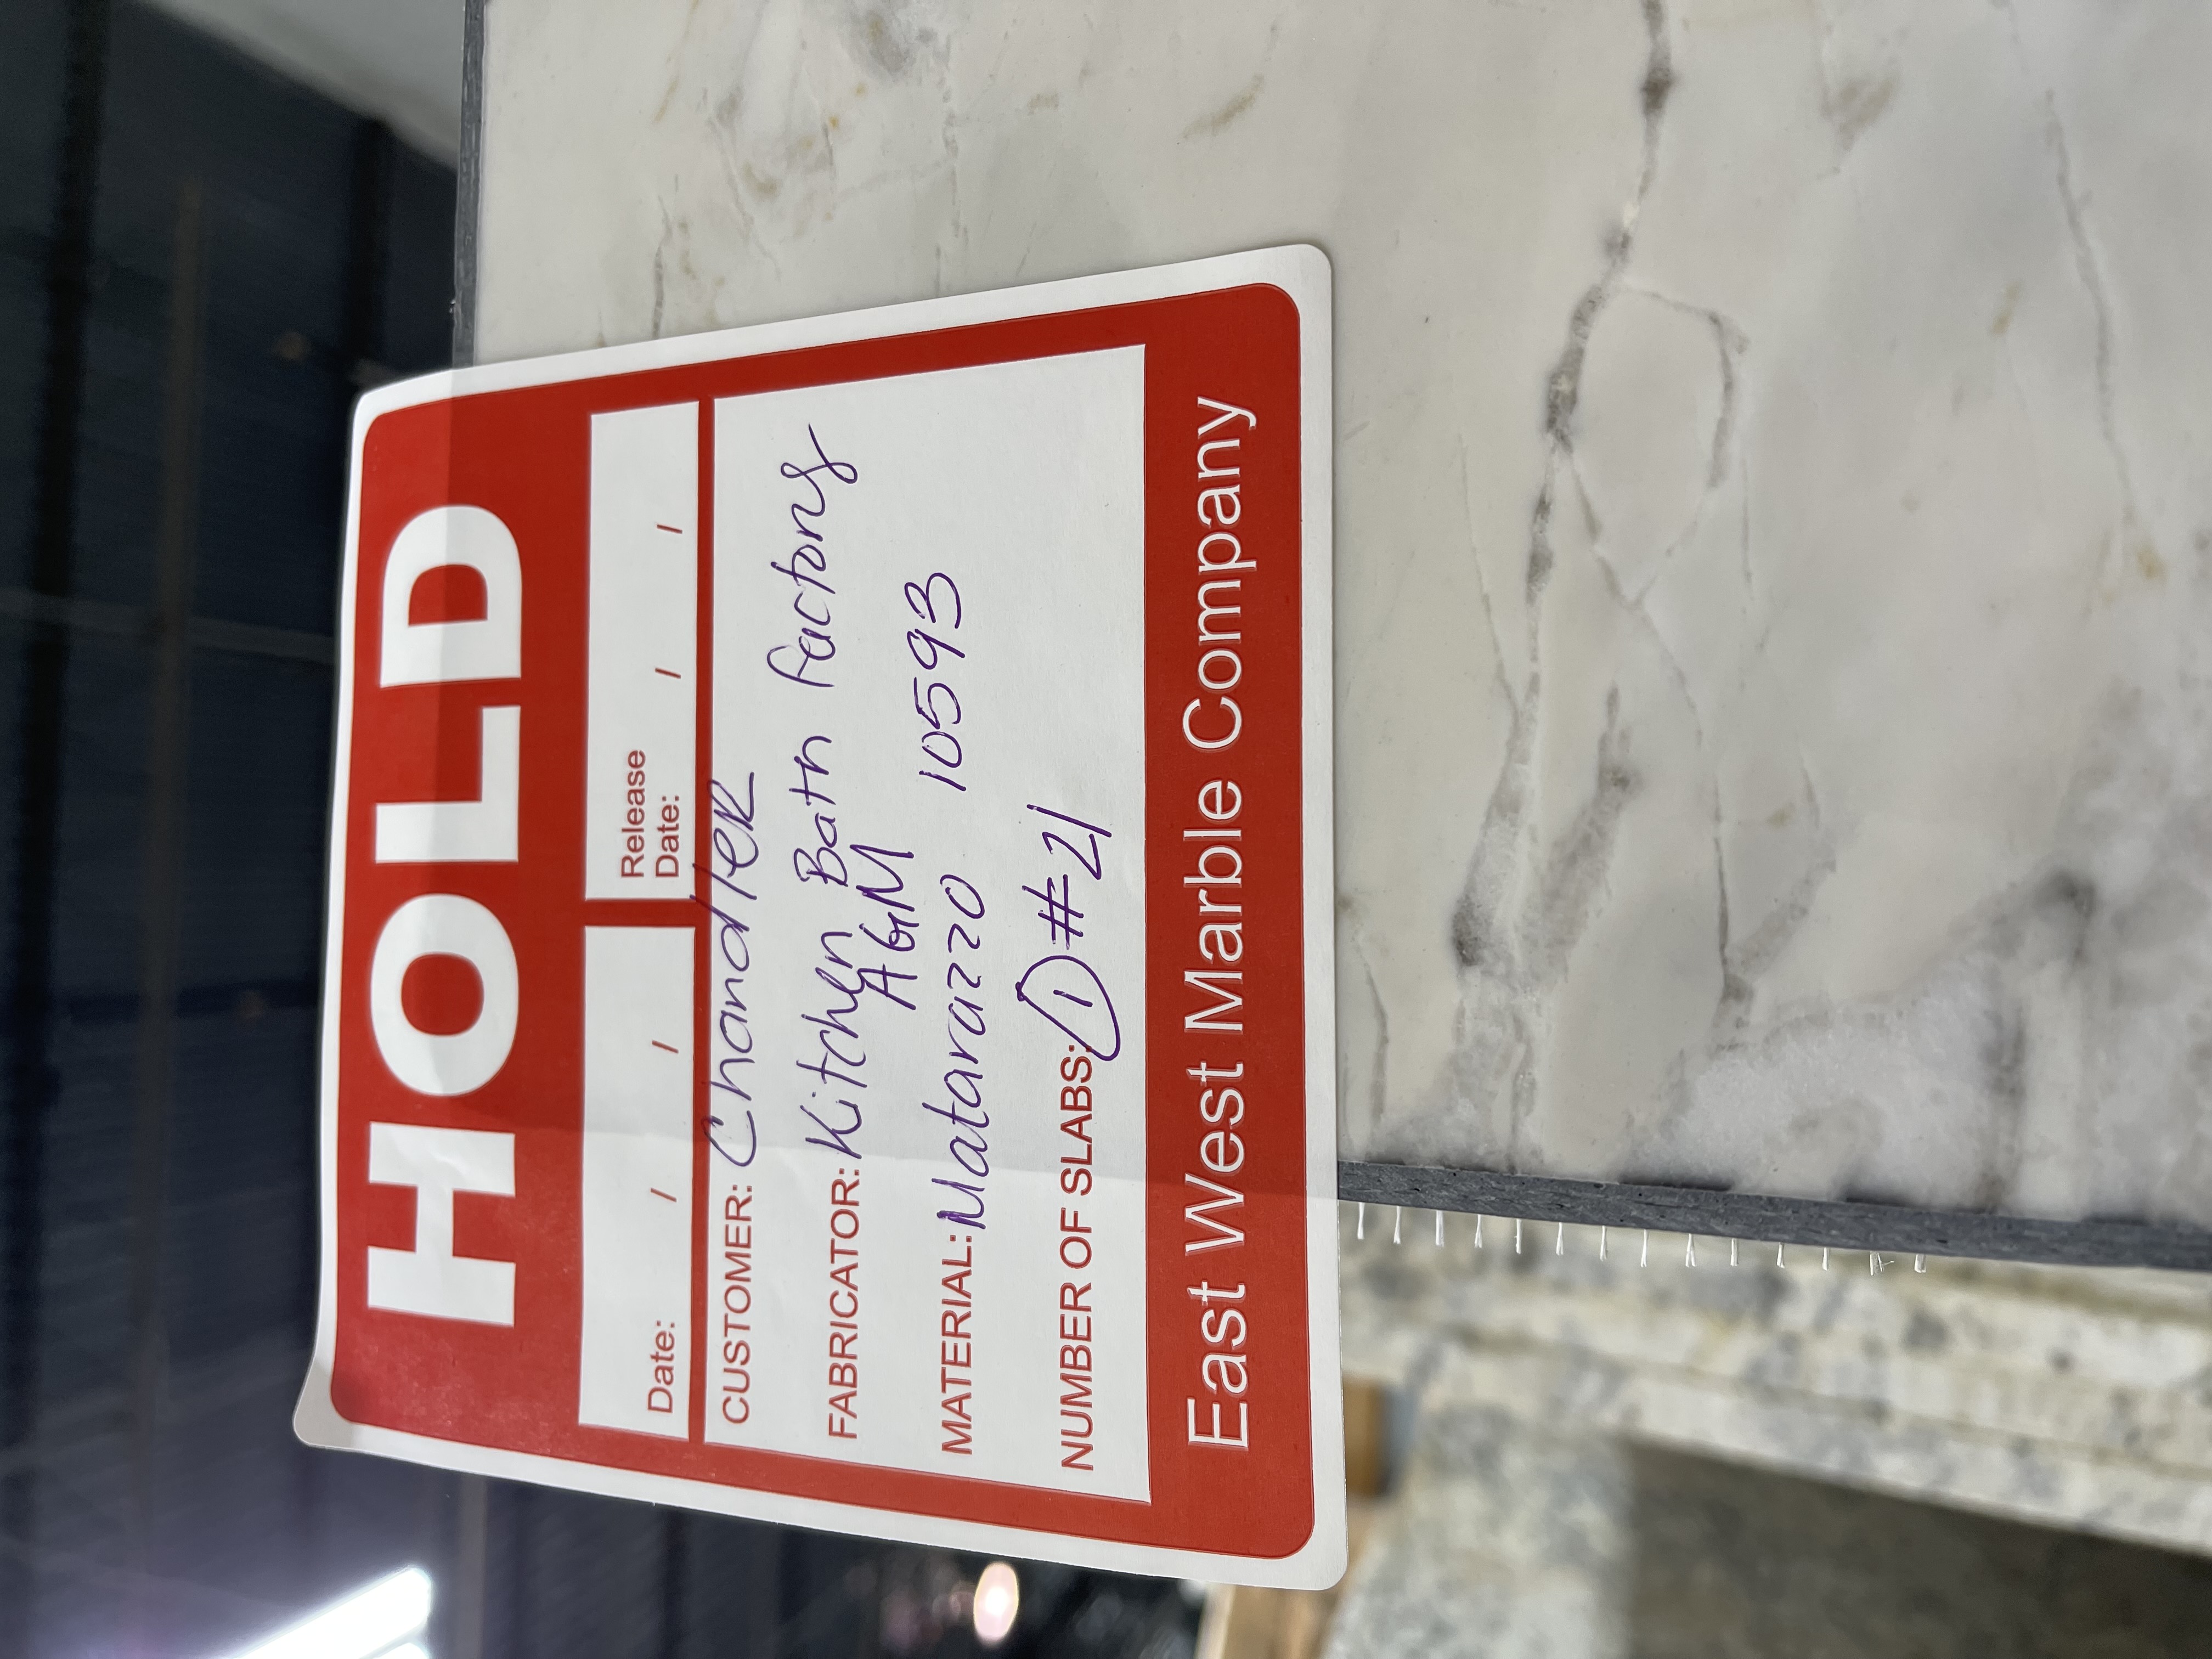 HOLD
Date: / /
Release
Date: / /
CUSTOMER: Chandler
FABRICATOR: Kitchen Bath Factory
AGM
MATERIAL: Matarazzo 10593
NUMBER OF SLABS: 1 #21
East West Marble Company